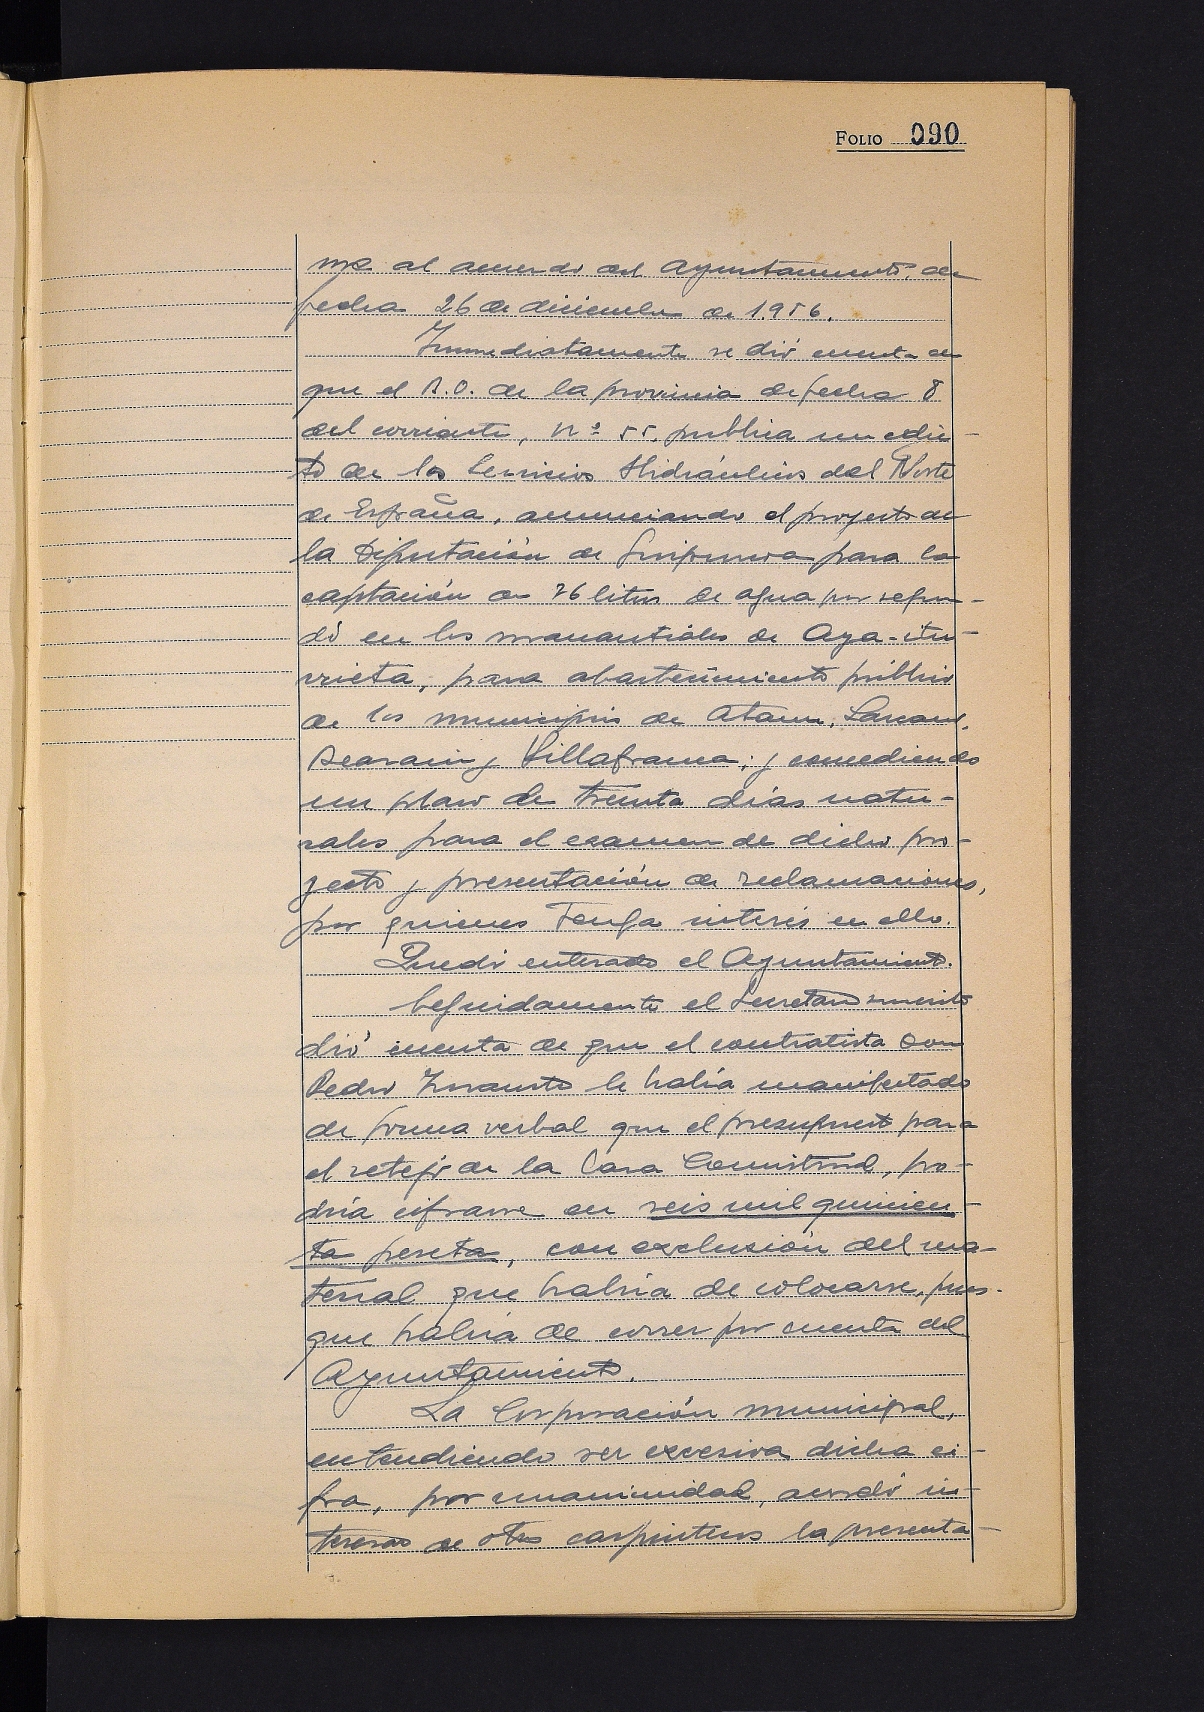 FOLIO 090
me al acuerdo del Ayuntamiento de
fecha 26 de diciembre de 1.956.
Inmediatamente se dió cuenta de
que el B.O. de la provincia de fecha 8
del corriente, nº 55, publica un edic-
to de los Servicios Hidráulicos del Norte
de España, anunciando el proyecto de
la Diputación de Guipuzcoa para la
captación de 76 litros de agua por segun-
do en los manantiales de Aya-itu-
rrieta, para abastecimiento público
de los municipios de Ataun, Lazcano,
Beasain y Villafranca; y concediendo
un plazo de treinta días natu-
rales para el examen de dicho pro-
yecto y presentación de reclamaciones,
por quienes tenga interés en ello.
Quedó enterado el Ayuntamiento.
Seguidamente el Secretario suscrito
dió cuenta de que el contratista Don
Pedro le había manifestado
de forma verbal que el presupuesto para
el retejo de la Casa Consistorial, po-
dría cifrarse en seis mil quinien-
tas pesetas, con exclusión del ma-
terial que habría de colocarse, pues-
que habría de correr por cuenta del
Ayuntamiento.
La Corporación municipal,
entendiendo ser excesiva dicha ci-
fra, por unanimidad, acordó in-
teresar de otros carpinteros la presenta-